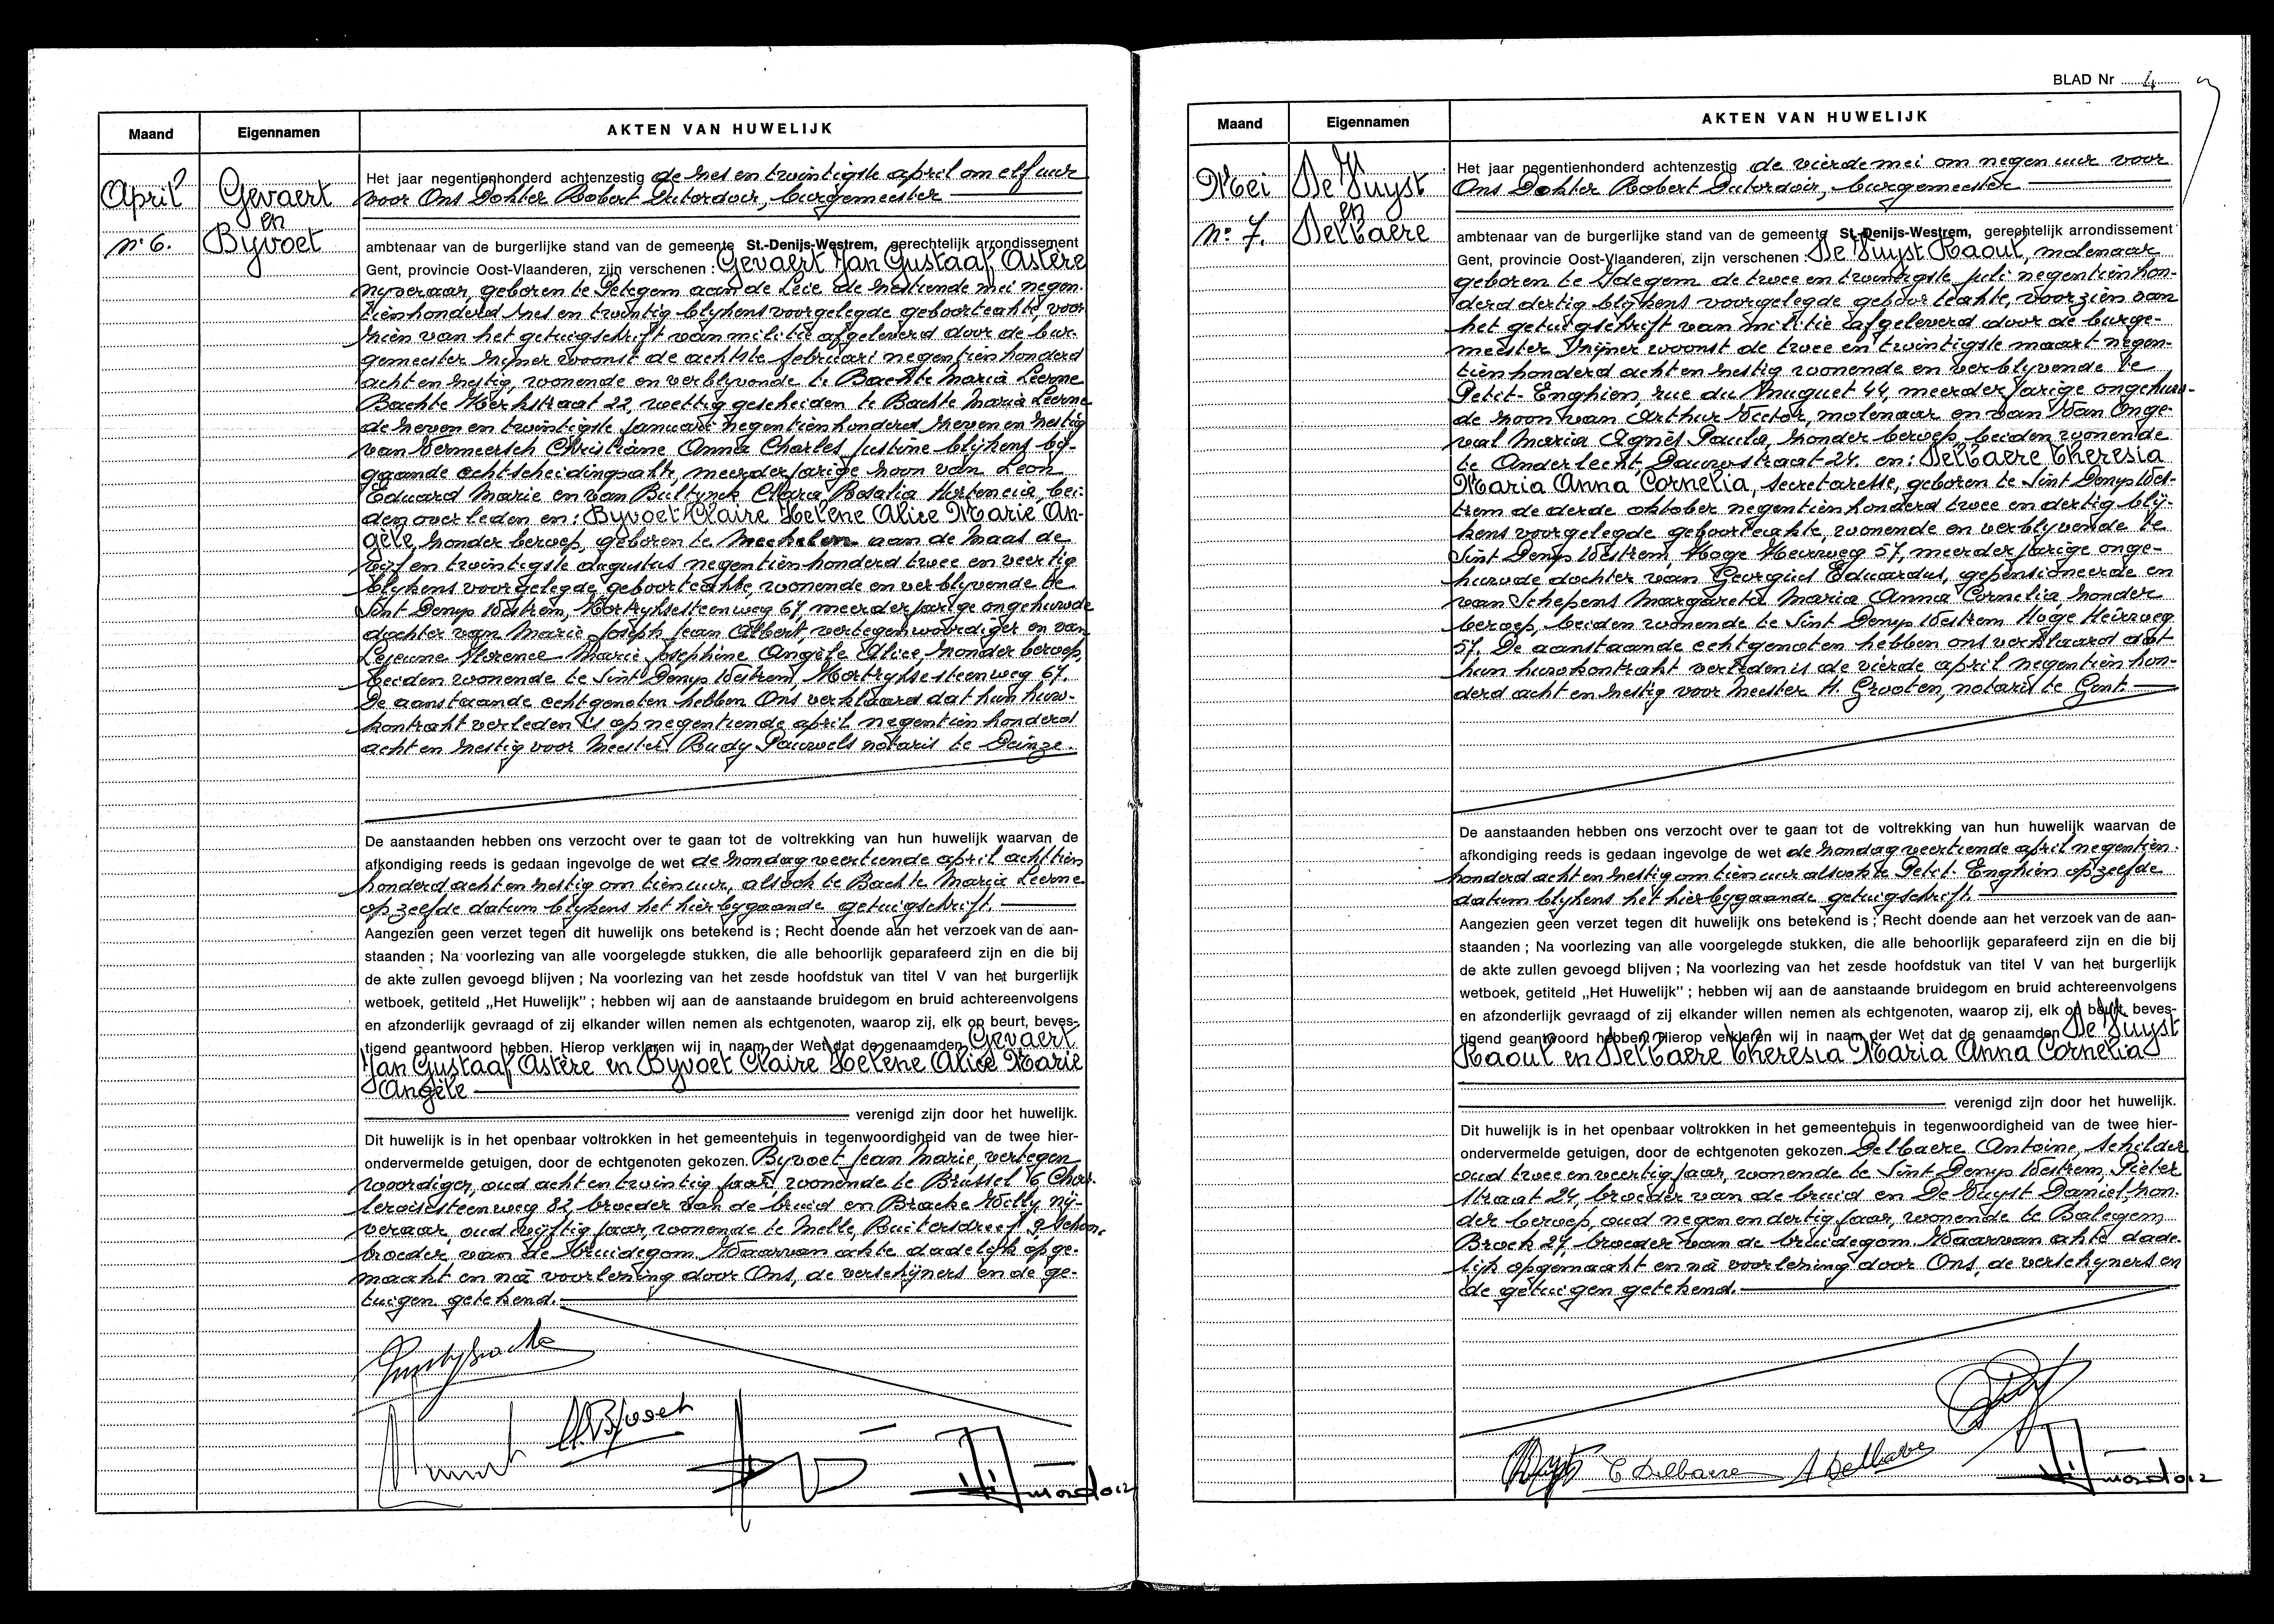 Maand
Eigennamen
AKTEN VAN HUWELIJK
April
nr 6.
Gevaert
en
Byvoet
Het jaar negentienhonderd achtenzestig de zes en twintigste april om elf uur
voor Ons Dokter Robert Dutordoir, burgemeester
ambtenaar van de burgerlijke stand van de gemeente St.-Denijs-Westrem, gerechtelijk arrondissement
Gent, provincie Oost-Vlaanderen, zijn verschenen : Gevaert Jan Gustaaf Astère
nyveraar, geboren te Petegem aan de Leie de zestiende mei negen-
tienhonderd zes en twintig blykens voorgelegde geboorteakte, voor
zien van het getuigschrift van militie afgeleverd door de bur-
gemeester zyner woonst de achtste februari negentienhonderd
acht en zestig, wonende en verblyvende te Bachte Maria Leerne
Bachte Kerkstraat 22, wettig gescheiden te Bachte Maria Leerne
de zeven en twintigste januari negentienhonderd zeven en zestig
van Vermeersch Christiane Anna Charles Justine blykens by-
gaande echtscheidingsakte, meerderjarige zoon van Leon
Eduard Marie en van Bultynck Clara Rosalia Hortencia, bei-
den overleden en : Byvoet Claire Helene Alice Marie An-
gèle, zonder beroep, geboren te Mechelen aan de Maas de
vyf en twintigste augustus negentienhonderd twee en veertig
blykens voorgelegde geboorteakte, wonende en verblyvende te
Sint Denys Westrem, Kortryksesteenweg 67, meerderjarige ongehuwde
dochter van Marie Joseph Jean Albert, vertegenwoordiger en van
Lejeune Florence Marie Josephine Angèle Alice, zonder beroep,
beiden wonende te Sint Denys Westrem, Kortryksesteenweg 67.
De aanstaande echtgenoten hebben Ons verklaard dat hun huw-
kontrakt verleden is op negentiende april negentienhonderd
acht en zestig voor Meester Rudy Pauwels notaris te Deinze.
De aanstaanden hebben ons verzocht over te gaan tot de voltrekking van hun huwelijk waarvan de
afkondiging reeds is gedaan ingevolge de wet de zondag veertiende april achttien
honderd acht en zestig om tien uur, alsook te Bachte Maria Leerne
op zelfde datum blykens het hierbygaande getuigschrift.
Aangezien geen verzet tegen dit huwelijk ons betekend is ; Recht doende aan het verzoek van de aan-
staanden ; Na voorlezing van alle voorgelegde stukken, die alle behoorlijk geparafeerd zijn en die bij
de akte zullen gevoegd blijven ; Na voorlezing van het zesde hoofdstuk van titel V van het burgerlijk
wetboek, getiteld „Het Huwelijk" ; hebben wij aan de aanstaande bruidegom en bruid achtereenvolgens
en afzonderlijk gevraagd of zij elkander willen nemen als echtgenoten, waarop zij, elk op beurt, beves-
tigend geantwoord hebben. Hierop verklaren wij in naam der Wet dat de genaamden Gevaert
Jan Gustaaf Astère en Byvoet Claire Helene Alice Marie
Angèle
verenigd zijn door het huwelijk.
Dit huwelijk is in het openbaar voltrokken in het gemeentehuis in tegenwoordigheid van de twee hier-
ondervermelde getuigen, door de echtgenoten gekozen. Byvoet Jean Marie, vertegen
woordiger, oud acht en twintig jaar, wonende te Brussel 6 Char-
leroisesteenweg 82, broeder van de bruid en Brache Willy nij-
veraar, oud vyftig jaar, wonende te Melle, Ruitersdreef 9 schoon-
broeder van de bruidegom. Waarvan akte dadelijk opge-
maakt en na voorlezing door Ons, de verschijners en de ge-
tuigen getekend.
BLAD Nr 4
Maand
Eigennamen
AKTEN VAN HUWELIJK
Mei
nr 7.
De Vuyst
en
Delbaere
Het jaar negentienhonderd achtenzestig de vierde mei om negen uur voor
Ons Dokter Robert Dutordoir, burgemeester
ambtenaar van de burgerlijke stand van de gemeente St.-Denijs-Westrem, gerechtelijk arrondissement
Gent, provincie Oost-Vlaanderen, zijn verschenen : De Vuyst Raoul, molenaar
geboren te Idegem de twee en twintigste juli negentienhon-
derd dertig blykens voorgelegde geboorteakte, voorzien van
het getuigschrift van militie afgeleverd door de burge-
meester zijner woonst de twee en twintigste maart negen-
tienhonderd acht en zestig wonende en verblyvende te
Petit-Enghien, rue du Muguet 44, meerderjarige ongehuw-
de zoon van Arthur Victor, molenaar en van Van Onge-
val Maria Agnès Paula, zonder beroep, beiden wonende
te Anderlecht, Dauwstraat 24. en : Delbaere Theresia
Maria Anna Cornelia, secretaresse, geboren te Sint Denys Wes-
trem de derde oktober negentienhonderd twee en dertig bly-
kens voorgelegde geboorteakte, wonende en verblyvende te
Sint Denys Westrem, Hoge Heirweg 57, meerderjarige onge-
huwde dochter van Georgius Eduardus, gepensioneerde en
van Schepens Margareta Maria Anna Cornelia zonder
beroep, beiden wonende te Sint Denys Westrem Hoge Heirweg
57. De aanstaande echtgenoten hebben ons verklaard dat
hun huwkontrakt verleden is de vierde april negentienhon-
derd acht en zestig voor Meester H. Grooten, notaris te Gent.
De aanstaanden hebben ons verzocht over te gaan tot de voltrekking van hun huwelijk waarvan de
afkondiging reeds is gedaan ingevolge de wet de zondag veertiende april negentien-
honderd acht en zestig om tien uur alsook te Petit-Enghien op zelfde
datum blykens het hierbygaande getuigschrift.
Aangezien geen verzet tegen dit huwelijk ons betekend is ; Recht doende aan het verzoek van de aan-
staanden ; Na voorlezing van alle voorgelegde stukken, die alle behoorlijk geparafeerd zijn en die bij
de akte zullen gevoegd blijven ; Na voorlezing van het zesde hoofdstuk van titel V van het burgerlijk
wetboek, getiteld „Het Huwelijk" ; hebben wij aan de aanstaande bruidegom en bruid achtereenvolgens
en afzonderlijk gevraagd of zij elkander willen nemen als echtgenoten, waarop zij, elk op beurt, beves-
tigend geantwoord hebben. Hierop verklaren wij in naam der Wet dat de genaamden De Vuyst
Raoul en Delbaere Theresia Maria Anna Cornelia
verenigd zijn door het huwelijk.
Dit huwelijk is in het openbaar voltrokken in het gemeentehuis in tegenwoordigheid van de twee hier-
ondervermelde getuigen, door de echtgenoten gekozen. Delbaere Antoine, schilder
oud twee en veertig jaar, wonende te Sint Denys Westrem, Pieter
straat 24, broeder van de bruid en De Vuyst Daniel, zon-
der beroep, oud negen en dertig jaar, wonende te Balegem,
Broek 27, broeder van de bruidegom. Waarvan akte dade-
lijk opgemaakt en na voorlezing door Ons, de verschyners en
de getuigen getekend.
T Delbaere
A Delbaere